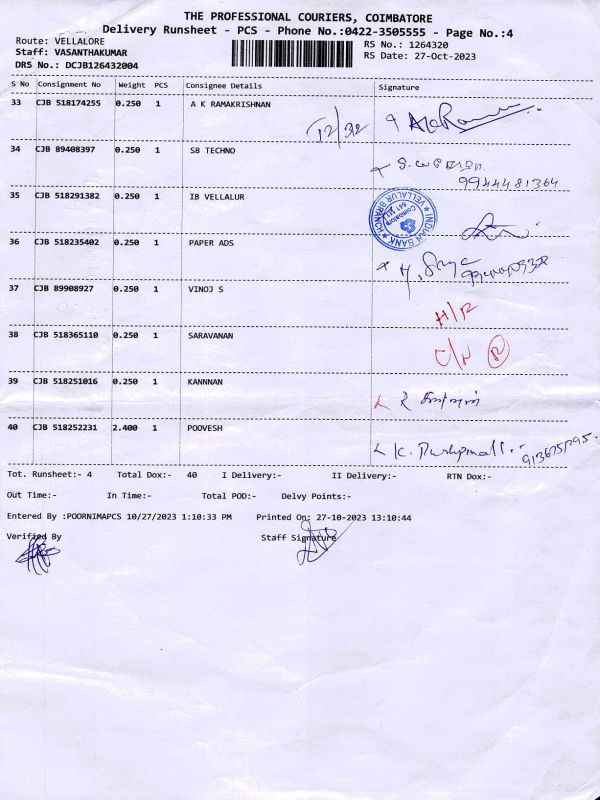 THE PROFESSIONAL COURIERS, COIMBATORE
Delivery Runsheet - PCS - Phone No.:0422-3505555 - Page No.:4
Route: VELLALORE
Staff: VASANTHAKUMAR
DRS No.: DCJB126432004
RS No.: 1264320
RS Date: 27-Oct-2023
S No Consignment No Weight PCS Consignee Details Signature
33 CJB 518174255 0.250 1 A K RAMAKRISHNAN
34 CJB 89408397 0.250 1 SB TECHNO
9944481364
35 CJB 518291382 0.250 1 IB VELLALUR
INDIAN BANK
VELLALUR BRANCH
Coimbatore
36 CJB 518235402 0.250 1 PAPER ADS
37 CJB 89908927 0.250 1 VINOJ S
38 CJB 518365110 0.250 1 SARAVANAN
39 CJB 518251016 0.250 1 KANNNAN
40 CJB 518252231 2.400 1 POOVESH
Tot. Runsheet:- 4 Total Dox:- 40 I Delivery:- II Delivery:- RTN Dox:-
Out Time:- In Time:- Total POD:- Delvy Points:-
Entered By :POORNIMAPCS 10/27/2023 1:10:33 PM Printed On: 27-10-2023 13:10:44
Verified By Staff Signature